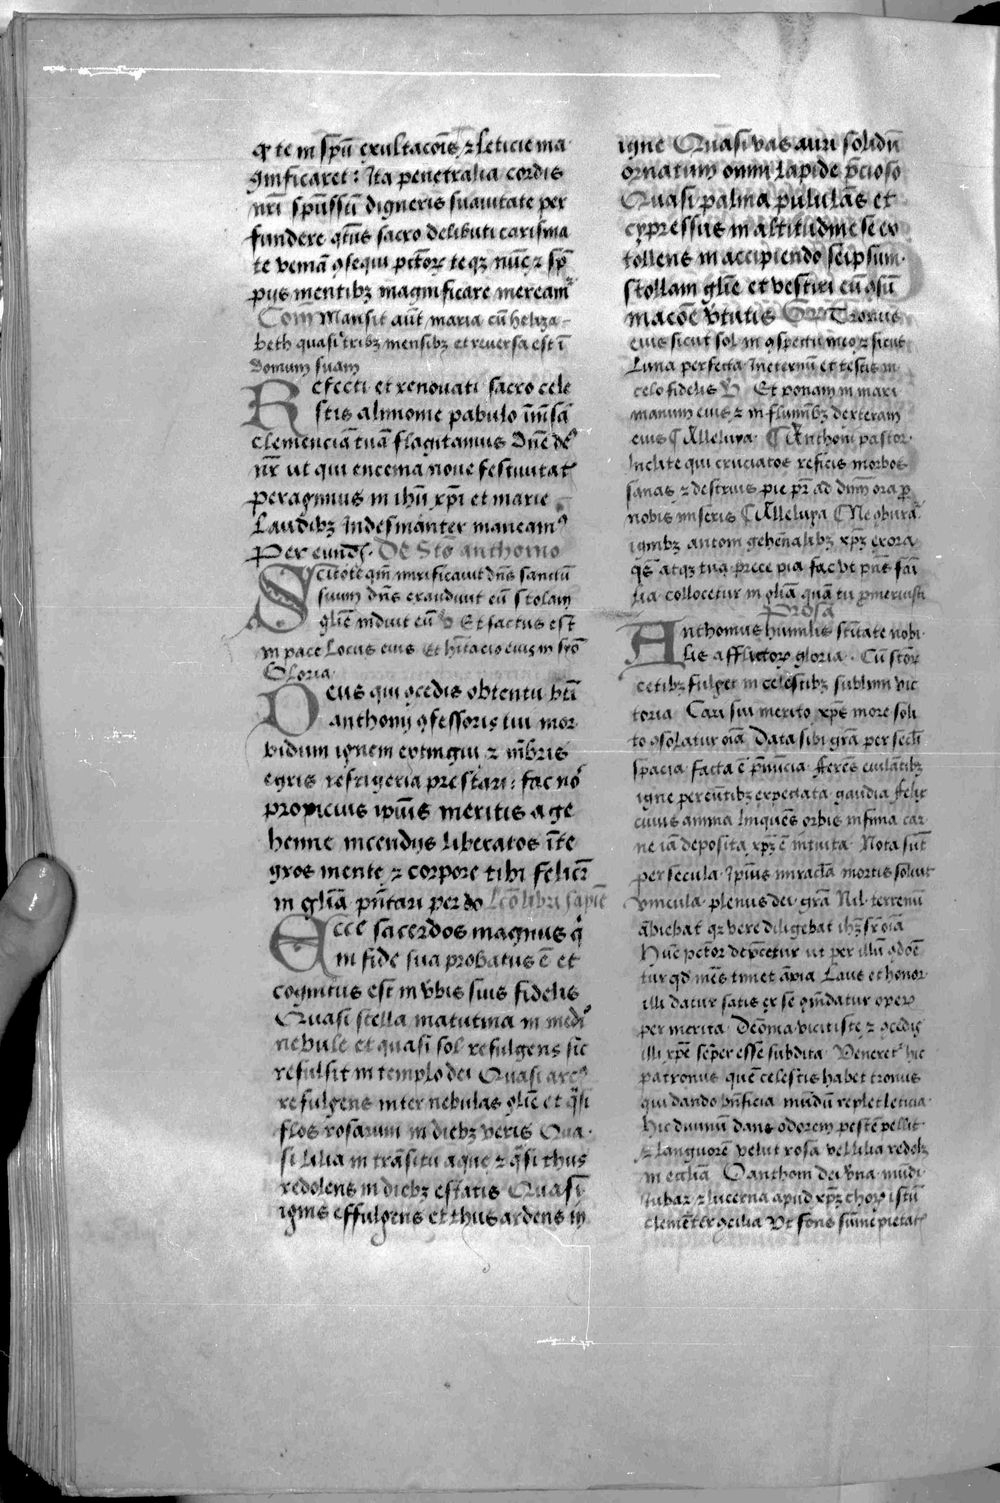 qͥ te in spū exultacōis ⁊ leticie ma
gnificaret: Ita penetralia cordis
nr̄i spūssūs digneris suauitate per
fundere qt̄us sacro delibuti carisma
te veniā ꝯsequi pctōꝝ teqꝫ nūc ⁊ sp̄
pijs mentibꝫ magnificare mereamʳ
Com̄ Mansit aūt maria cū heliza-
beth quasi tribꝫ mensibꝫ et reuersa est ī
domum suam
Refecti et renouati sacro cele
stis alimonie pabulo īm̄sā
clemenciā tuā flagitamus Dn̄e deꝰ
nr̄ ut qui encenia noue festiuitatꝭ
peragimus in ihū xp̄i et marie
Laudibꝫ Indesinanter maneamꝰ
Per eund̄. De Stō anthonio
Scitote qm̄ mirificauit dn̄s sanctū
suum dn̄s exaudiuit eū Stolam
glīe induit eū v̄ Et factus est
in pace Locus eius Et hītacio eius in sȳō
Gloria
Deus qui ꝯcedis obtentu bt̄i
anthonij ꝯfessoris tui mor
bidum ignem extingui ⁊ mēbris
egris refrigeria prestari: fac nos
propicius ip̄ius meritis a ge
henne incendijs liberatos īte
gros mente ⁊ corpore tibi felicit̄
in gl̄ia pn̄tari per do Lcō libri sapiē
Ecce sacerdos magnus q̄
in fide sua probatus ē et
cognitus est in v̄bis suis fidelis
Quasi stella matutina in medio
nebule et quasi sol refulgens sic
refulsit in templo dei Quasi arcꝰ
refulgens inter nebulas glīe et qͣsi
flos rosarum in diebꝫ veris Qua-
si lilia in trāsitu aque ⁊ qͣsi thus
redolens in diebꝫ estatis Quasi
ignis effulgens et thus ardens in
igne Quasi vas auri solidū
ornatum omni lapide p̄cioso
Quasi palma pululās et
cypressus in altitudine se ex
tollens in accipiendo seipsum
stollam glīe et vestiri eū ꝯsū
macōe v̄tutis Tronus
eius sicut sol in ꝯspectu meo ⁊ sicut
Luna perfecta In eternū et testis in
celo fidelis v̄ Et ponam in mari
manum eius ⁊ in fluminibꝫ dexteram
eius Alleluya Anthoni pastor
Inclite qui cruciatos reficis morbos
sanas ⁊ destruis pie pr̄ ad dnm̄ ora ꝓ
nobis miseris Alleluya Ne obura
ignibꝫ antoni gehēnalibꝫ xp̄ꝫ exora
q̄s atqꝫ tua prece pia fac ut pn̄s fāi
lia collocetur in gl̄ia quā tu ꝓmeruisti
Prosa
Anthonius humilis sctūate nobi-
lis afflictoꝝ gloria Cū stōꝝ
cetibꝫ fulget in celestibꝫ sublimi vic
toria Cari sui merito xp̄s more soli
to ꝯsolatur oīa Data sibi grā per secl̄i
spacia facta ē ꝓuincia Ferēs eiulātibꝫ
igne pereūtibꝫ expectata gaudia Felix
cuius anima linquēs orbis infima car
ne iā deposita xp̄ꝫ ē intuita Nota sūt
per secula Ip̄ius miracl̄a mortis soluit
vincula plenus dei grā Nil terrenū
ābiebat qꝛ vere diligebat ihꝫ sꝑ oīa
tur qd̄ mēs timet āxia Laus et honor
illi datur satis
per merita
illi xp̄e semper esse subdita Veneretʳ hic
patronus quē celestis habet tronus
qui dando bn̄ficia mūdū replet leticia
hic diuinū dans odorem pestē pellit
⁊ languorē velut rosa vel lilia redolꝫ
in eccl̄ia O anthoni dei v̄na mūdi
Iubar ⁊ lucerna apud xp̄ꝫ choꝝ istū
clementer ꝯcilia Vt fons sūme pietatꝭ